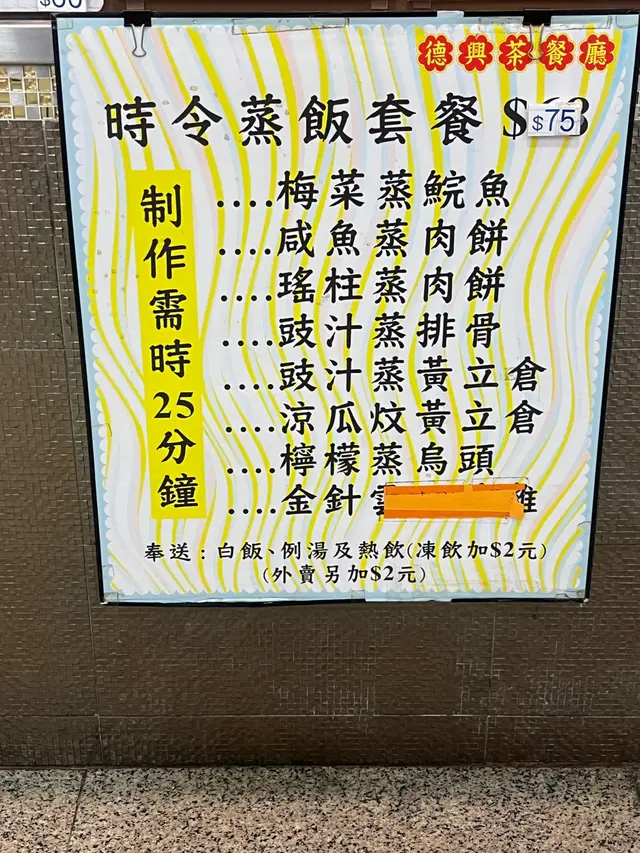 德興茶餐廳
時令蒸飯套餐 $75
制作需時25分鐘
....梅菜蒸鯇魚
....咸魚蒸肉餅
....瑤柱蒸肉餅
....豉汁蒸排骨
....豉汁蒸黃立倉
....涼瓜炆黃立倉
....檸檬蒸烏頭
....金針
奉送:白飯、例湯及熱飲(凍飲加$2元)
(外賣另加$2元)